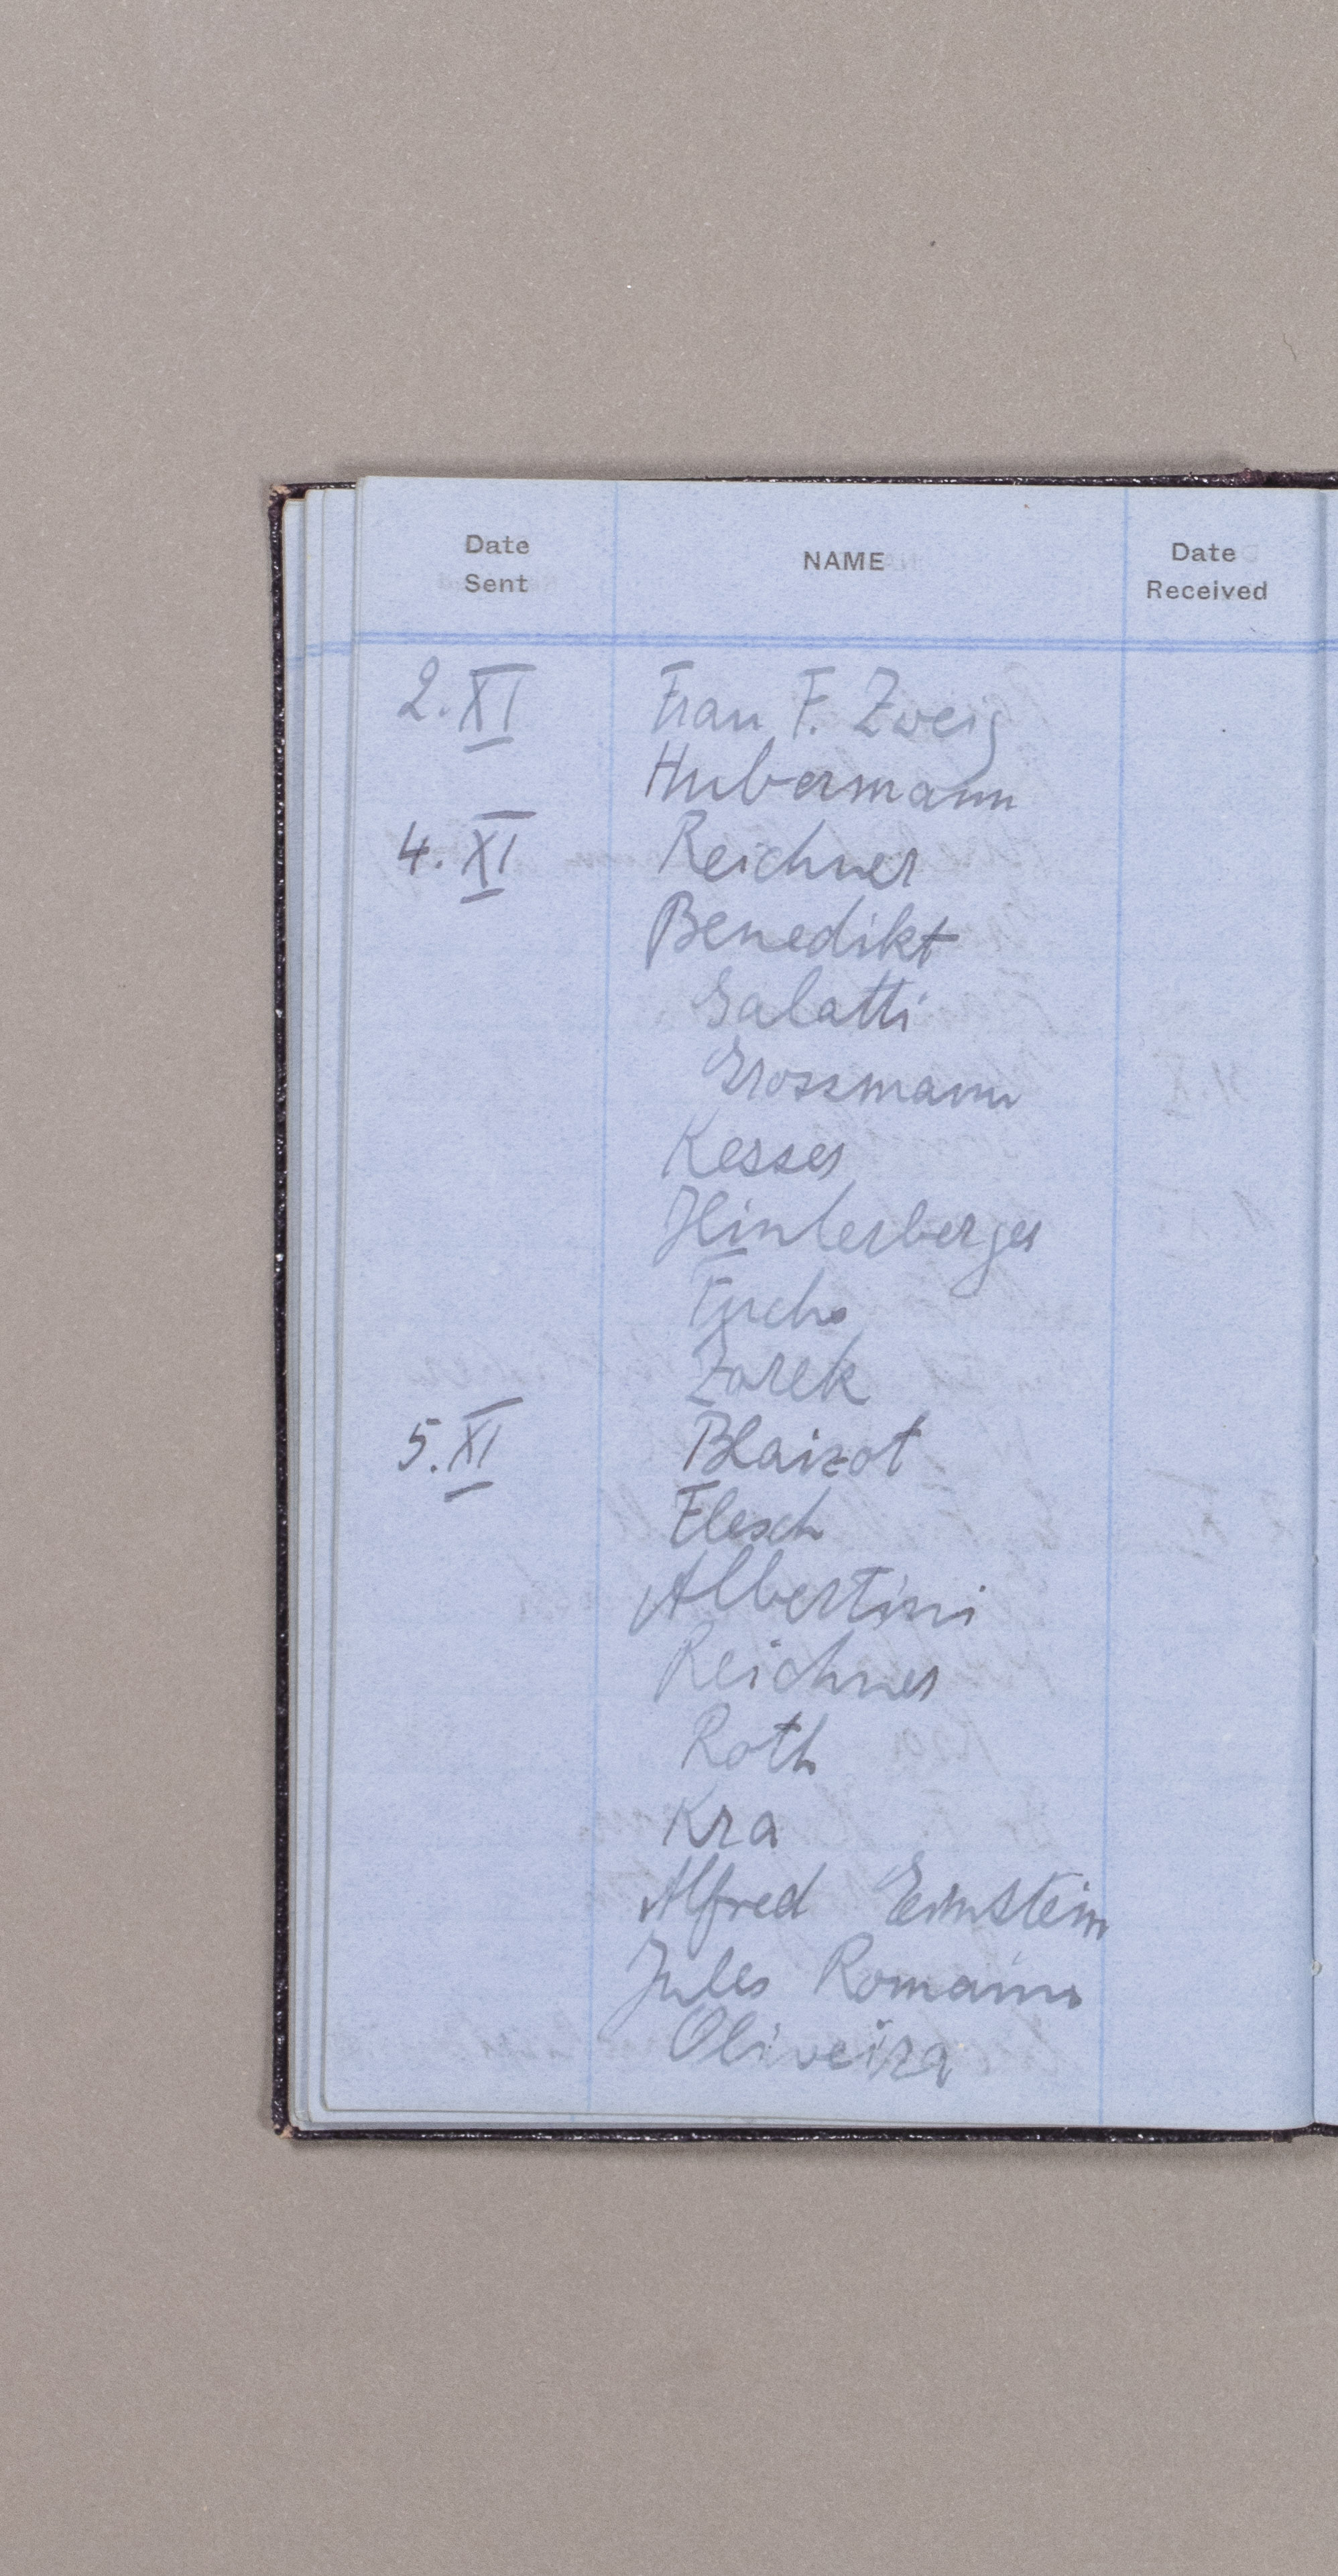 Date Sent NAME Date Received
2. XI Frau F. Zweig
Hubermann
4. XI Reichner
Benedikt
Galatti
Grossmann
Kesser
Hinterberger
Fuchs
Zarek
5. XI Blaizot
Flesch
Albertini
Reichner
Roth
Kra
Alfred Einstein
Jules Romains
Oliveira